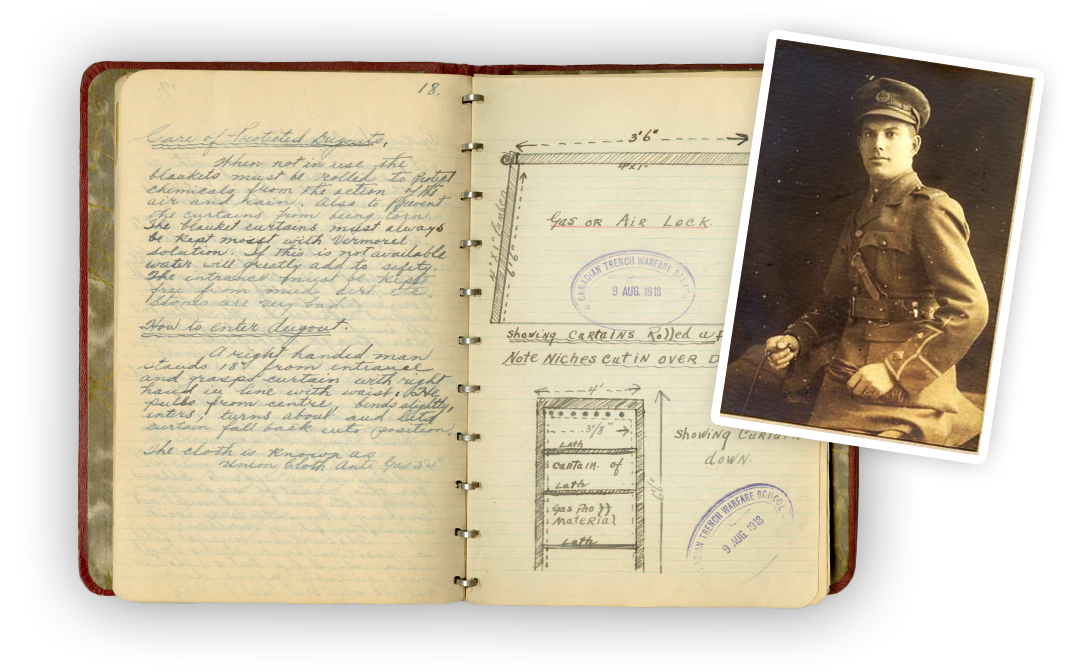 18.
Care of Protected Dugouts.
When not in use the
blankets must be rolled to protect
chemicals from the action of the
air and rain. Also to prevent
the curtains from being torn.
The blanket curtains must always
be kept moist with Vermorel
solution. If this is not available
water will greatly add to safety.
The entrance must be kept
free from mud, dirt etc.
Stones are very bad.
How to enter dugout.
A right handed man
stands 18" from entrance
and grasps curtain with right
hand in line with waist. He
pulls from centre, bends slightly,
enters, turns about and lets
curtain fall back into position.
The cloth is known as
Union Cloth Anti Gas
3'6"
4x1"
4"x1"
6'6"
Gas or Air Lock.
CANADIAN TRENCH WARFARE SCHOOL
9 AUG. 1918
Showing Curtains Rolled up
Note Niches cut in over D
4'
3/8"
Lath
Curtain of
Lath
Gas Proff
Material
Lath
6'6"
Showing Curtain
down.
CANADIAN TRENCH WARFARE SCHOOL
9 AUG. 1918